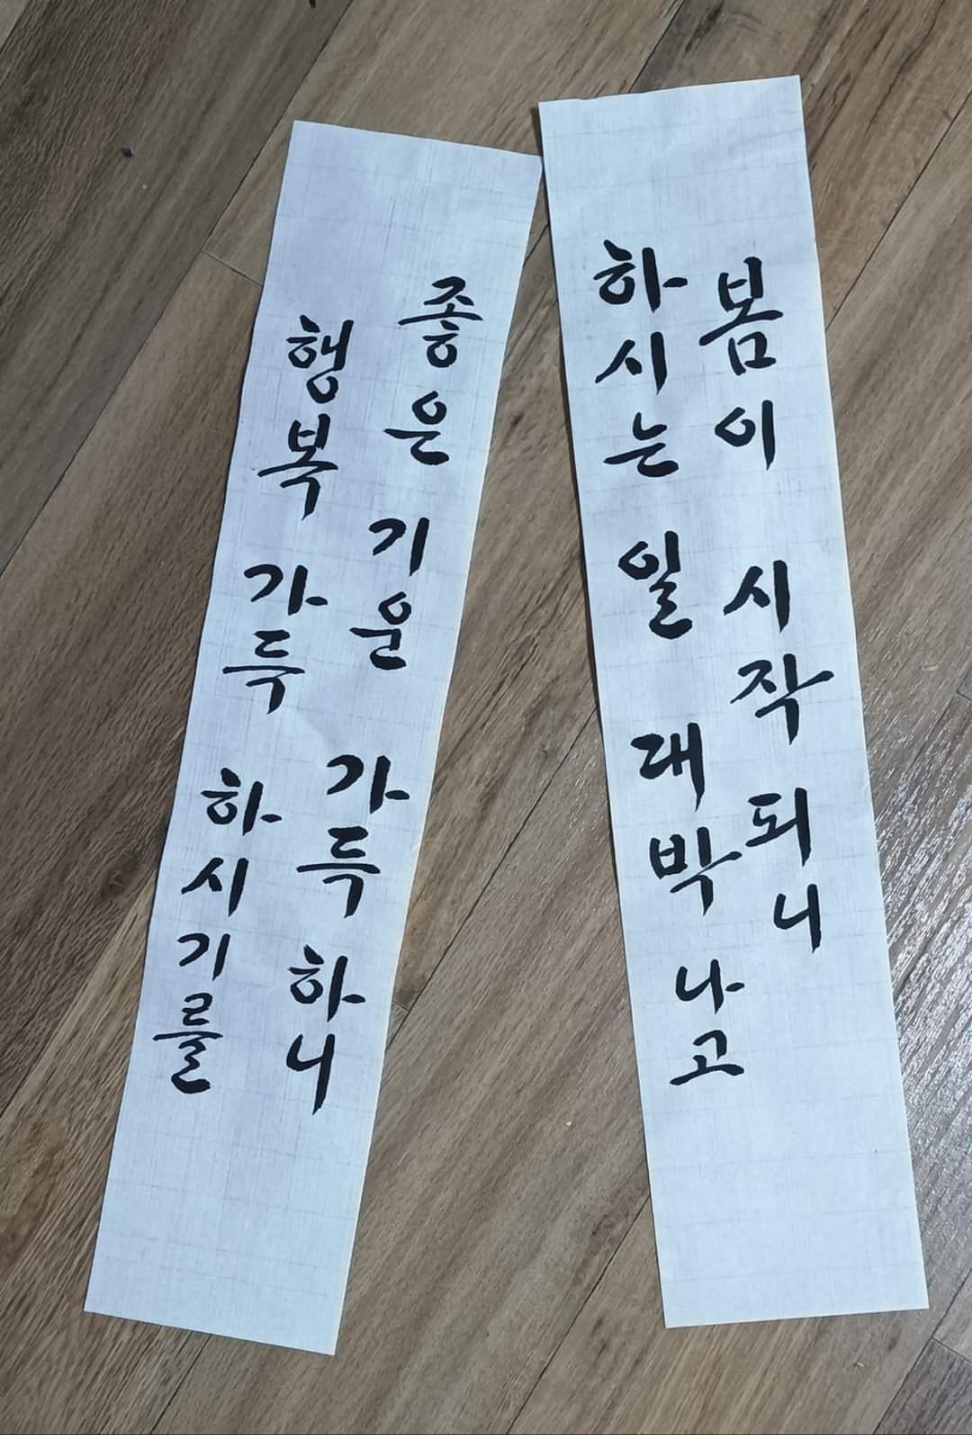 봄이 시작되니
하시는 일 대박나고
좋은 기운 가득하니
행복 가득 하시기를